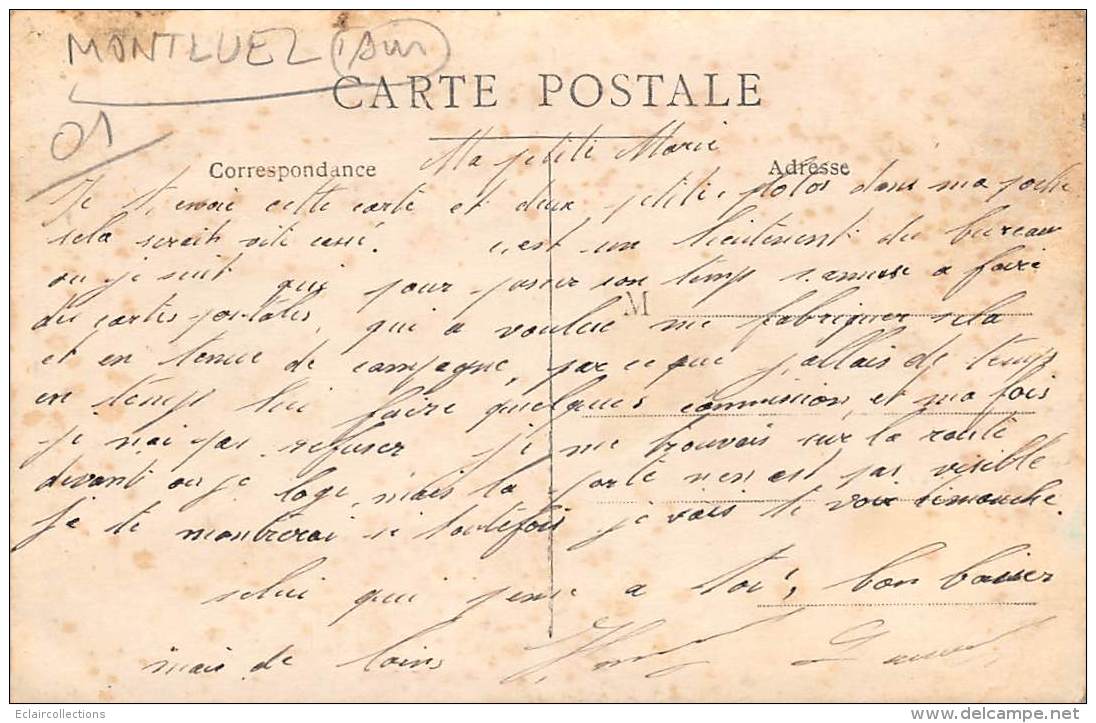 MONTLUEL (Ain)
01
CARTE POSTALE
Correspondance
Adresse
Ma petite Marie
Je t'envoie cette carte et deux petite photos dans ma poche
sela serait vite cassé. c'est un lieutenent du bureau
ou je suit qui pour passer son temp s'amuse a faire
des cartes postales, qui a voulue me fabriquer sela
M
et en tenue de campagne, parceque j'allais de temps
en temp lui faire quelques commission, et ma fois
je n'ai pas refuser je me trouvais sur la route
devant ou je loge, mais la porte n'en est pas visible
je te montrerai si toutefois je vais te voir dimanche.
selui qui pense a toi, bon baiser
mais de loins
Eclaircollections
www.delcampe.net